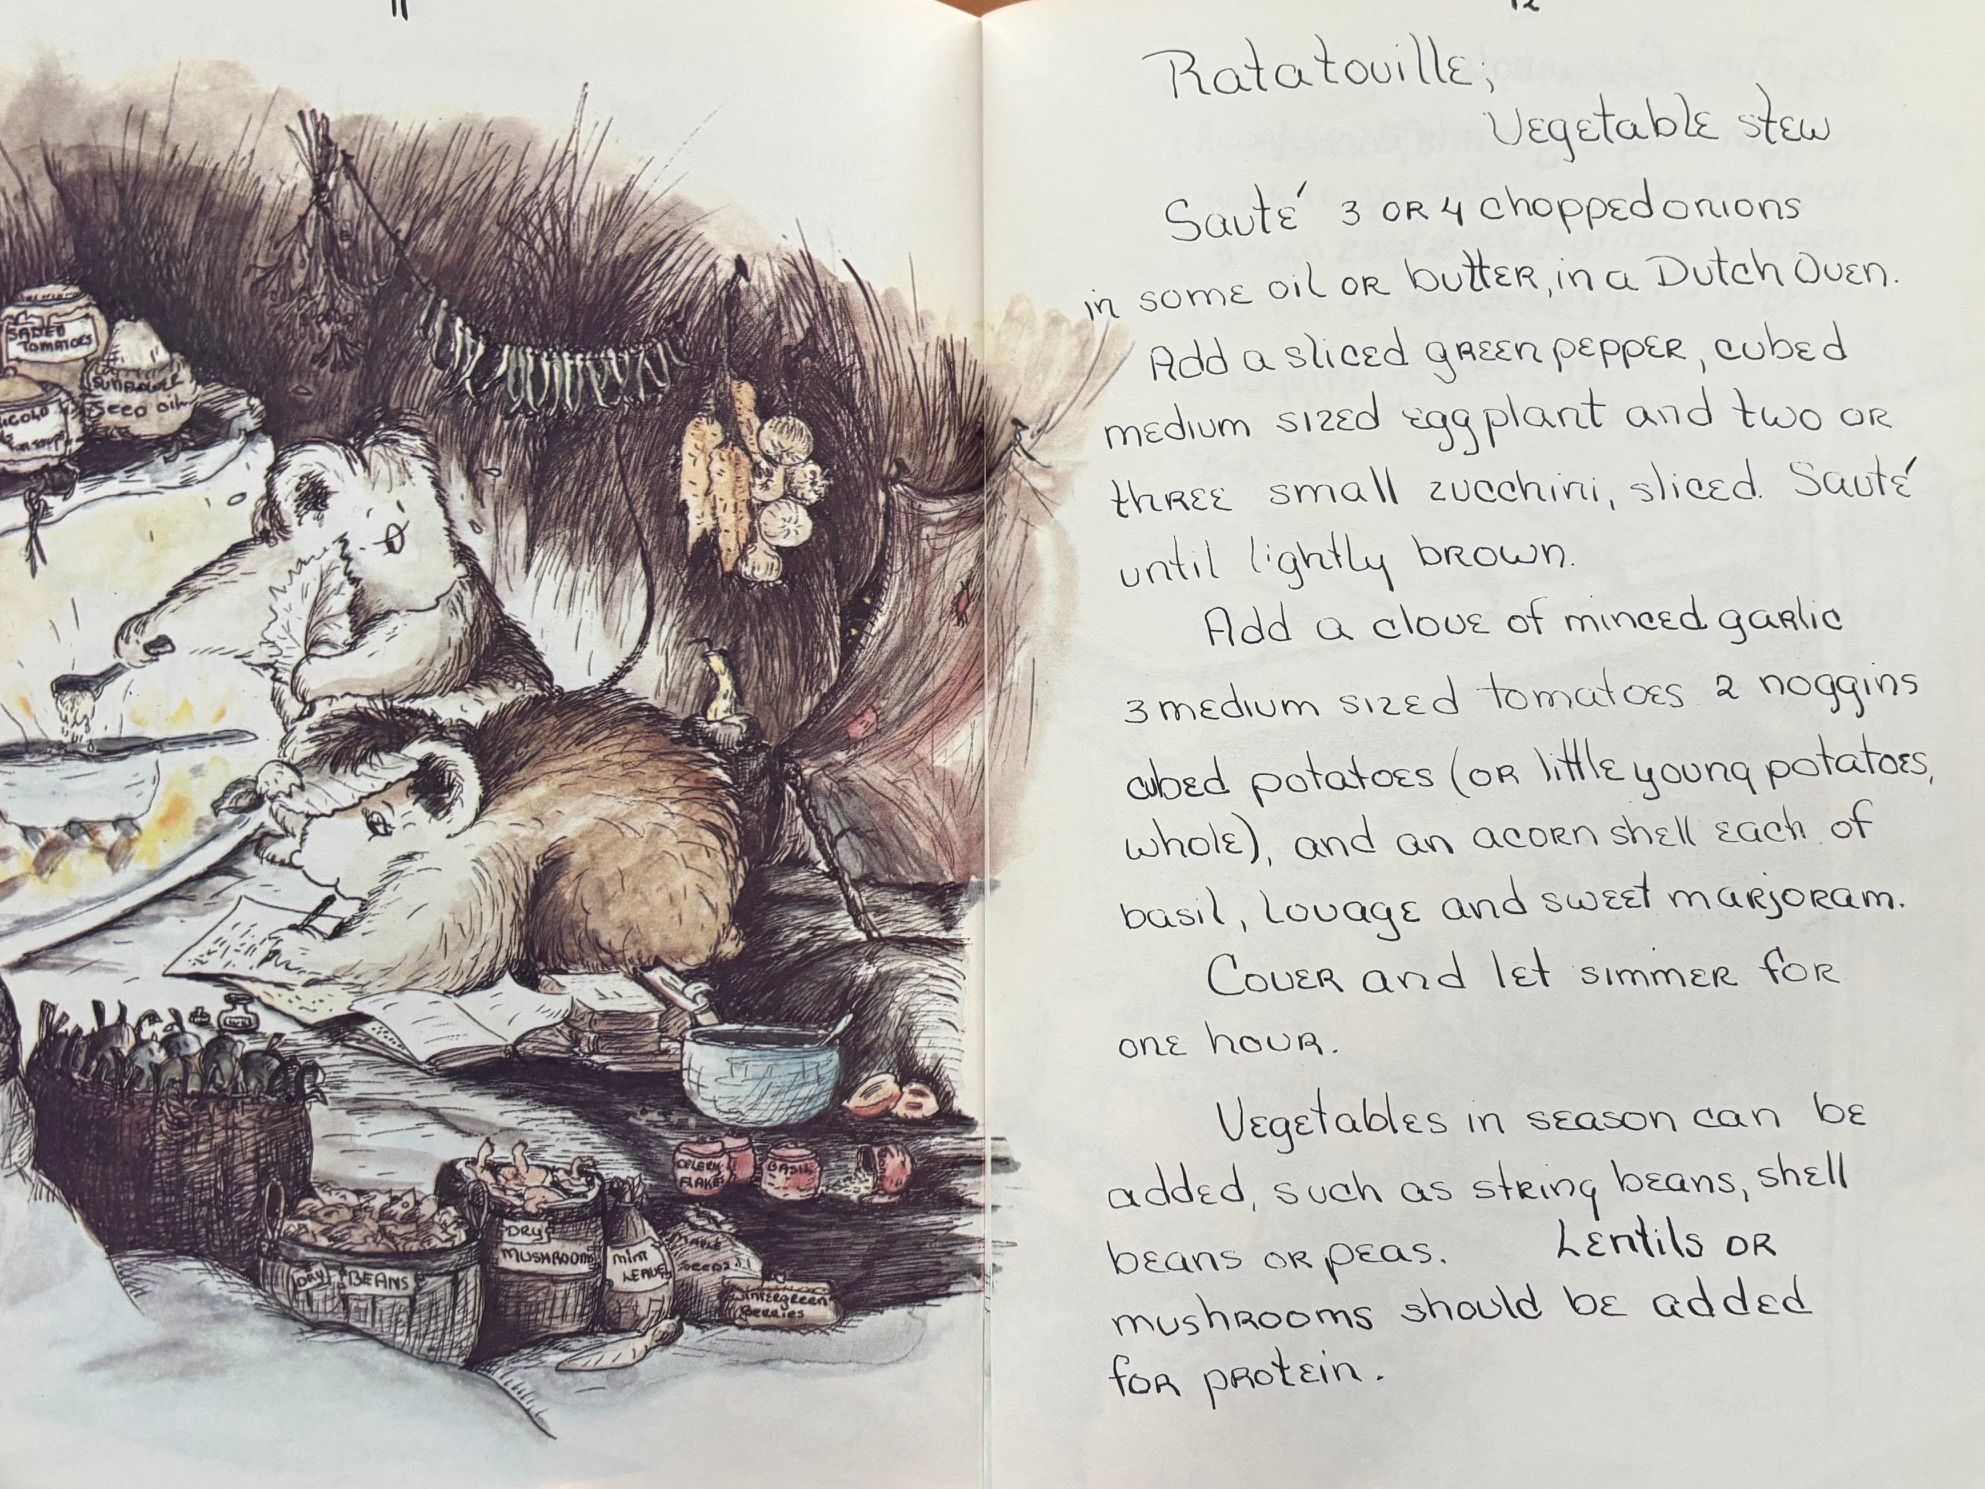 11
SUNFLOWER
SEED OIL
CELERY
FLAKES
BASIL
DRY
MUSHROOMS
MINT
LEAVES
DRY BEANS
WINTERGREEN
BERRIES
12
Ratatouille;
Vegetable stew
Sauté 3 or 4 chopped onions
in some oil or butter, in a Dutch Oven.
Add a sliced green pepper, cubed
medium sized eggplant and two or
three small zucchini, sliced. Sauté
until lightly brown.
Add a clove of minced garlic
3 medium sized tomatoes 2 noggins
cubed potatoes (or little young potatoes,
whole), and an acorn shell each of
basil, lovage and sweet marjoram.
Cover and let simmer for
one hour.
Vegetables in season can be
added, such as string beans, shell
beans or peas. Lentils or
mushrooms should be added
for protein.